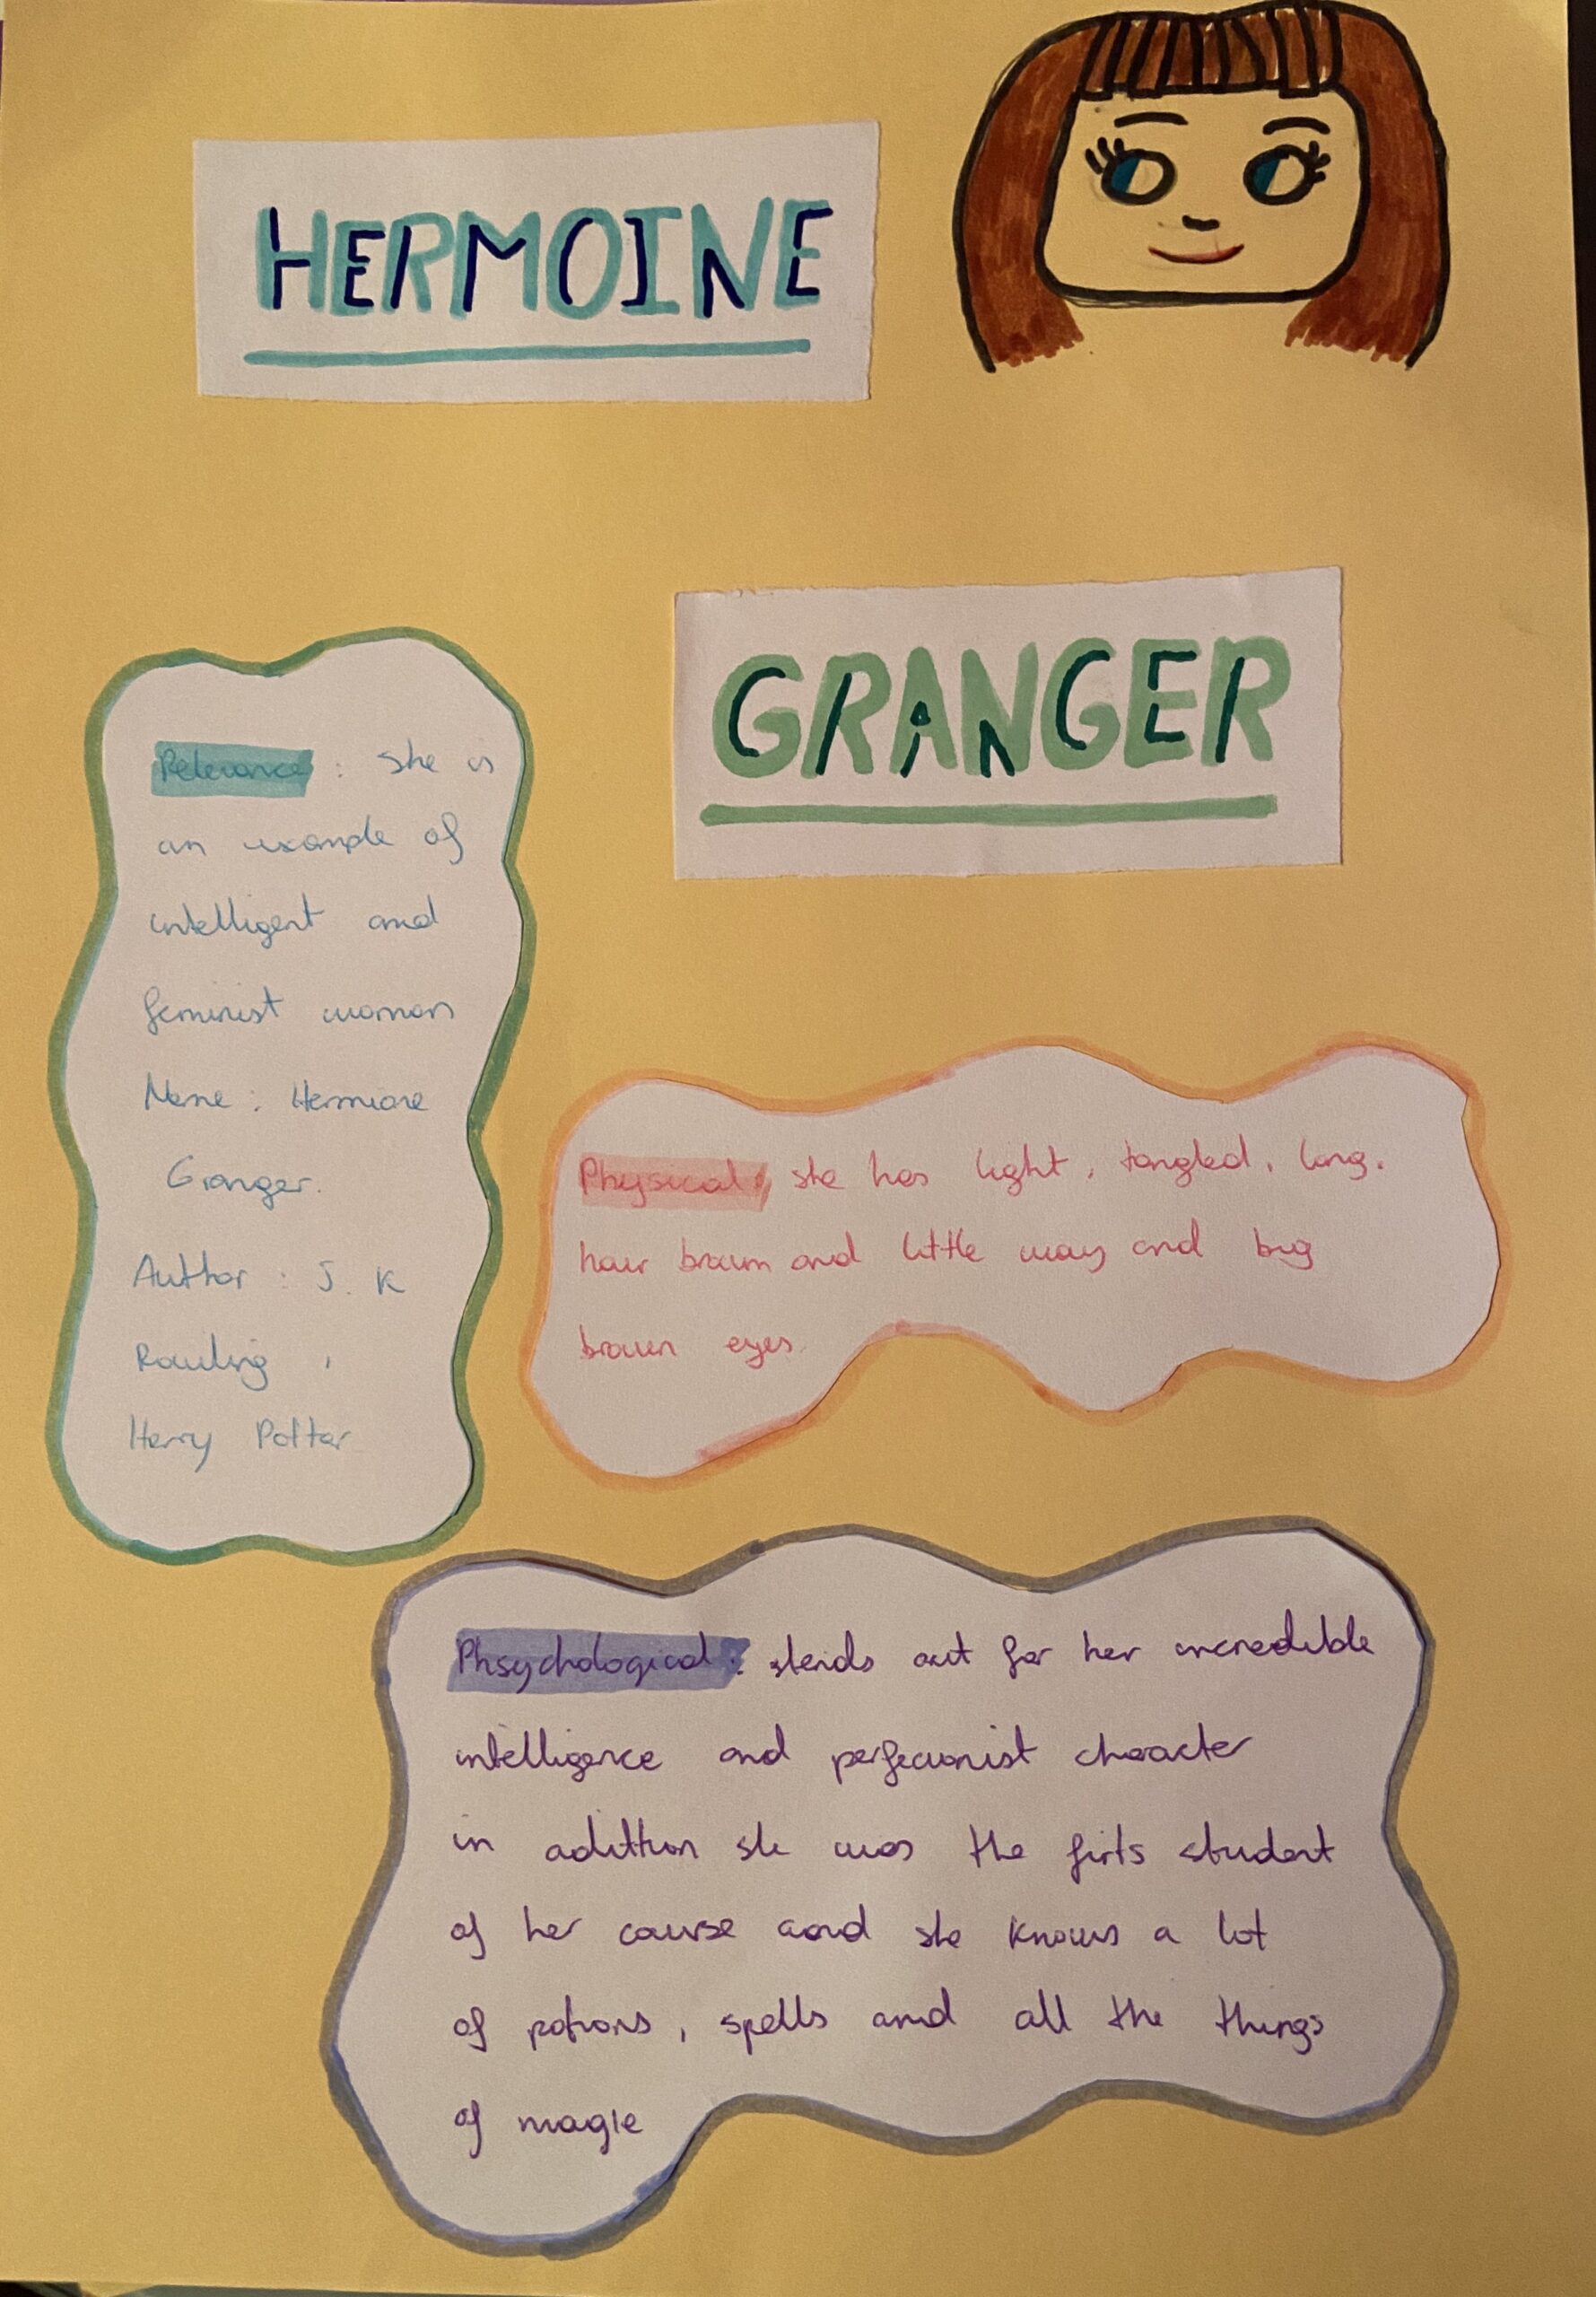 HERMOINE
GRANGER
Relevance : she is
an example of
intelligent and
feminist woman
Name : Hermione
Granger.
Author : J. K
Rowling ,
Harry Potter
Physical : she has light, tangled, long.
hair brown and little wavy and big
brown eyes.
Phsychological : stands out for her incredible
intelligence and perfecionist character
in adittion she was the firts student
of her course aond she knows a lot
of potions, spells and all the things
of magie